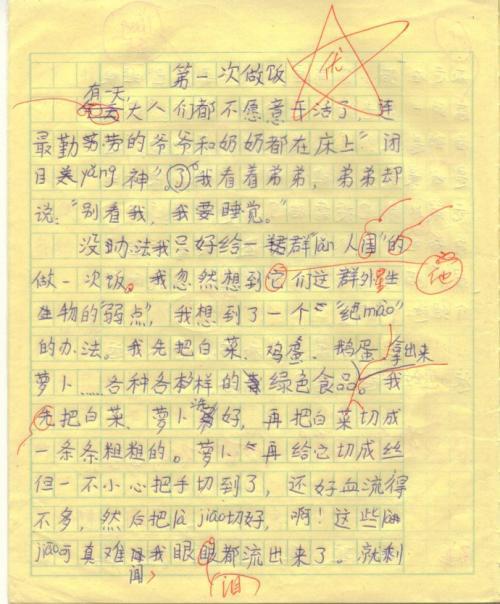 优
第一次做饭
有一天,
大人们都不愿意干活了,连
最勤劳的爷爷和奶奶都在床上"闭
目养yǎng神"。我看着弟弟,弟弟却
说:"别看我,我要睡觉。"
没助法我只好给一群"lǎn人国"的
做一次饭。我忽然想到它们这群外星
他
生物的"弱点",我想到了一个"绝mào"
的办法。我先把白菜、鸡蛋、鹅蛋、拿出来
萝卜……各种各样的绿色食品。我
先把白菜、萝卜洗好,再把白菜切成
一条条粗粗的。萝卜再给它切成丝
但一不小心把手切到了,还好血流得
不多,然后把là jiāo切好,啊!这些là
jiāo可真难闻我眼眼都流出来了。就剩
泪